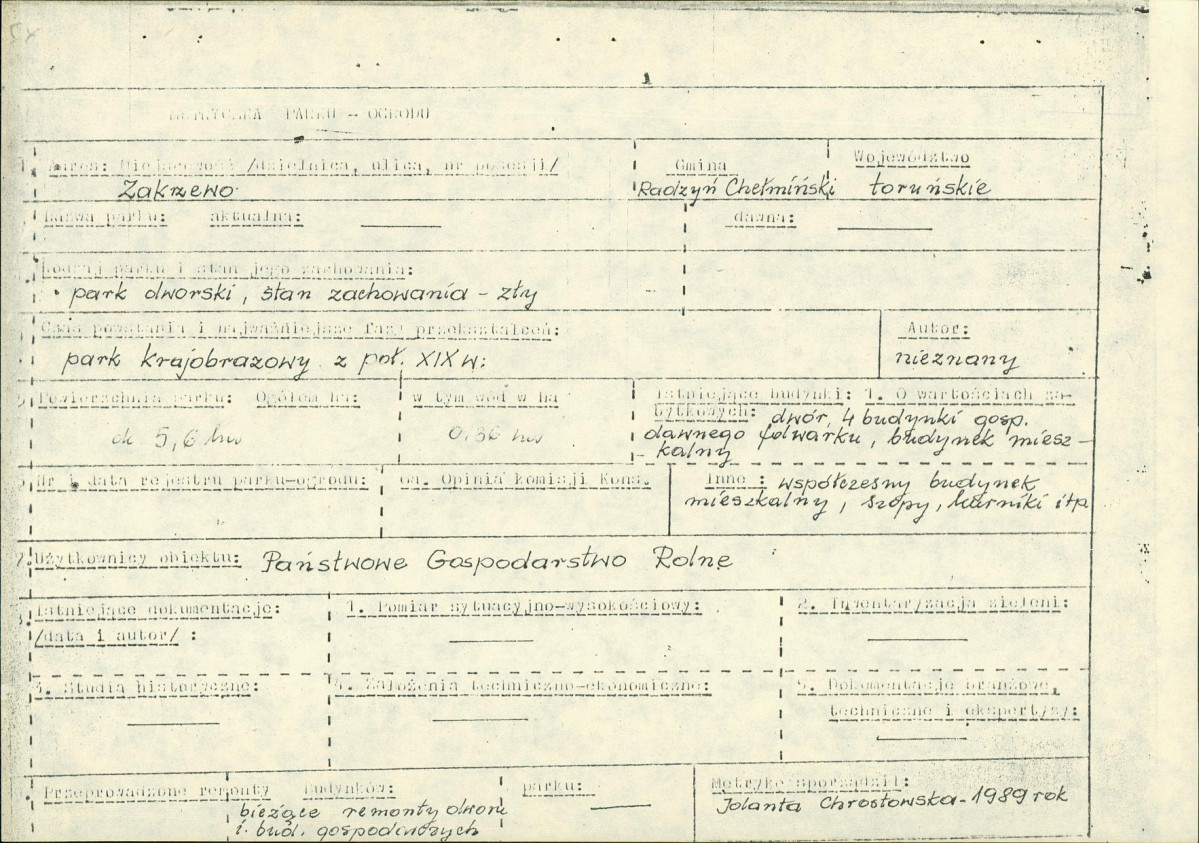 METRYCZKA PARKU - OGRODU
Adres: Miejscowość /dzielnica, ulica, nr posesji/
Zakrzewo
Gmina
Radzyń Chełmiński
Województwo
toruńskie
Nazwa parku: aktualna: ——— dawna: ———
Rodzaj parku i stan jego zachowania:
park dworski, stan zachowania - zły
Czas powstania i najważniejsze fazy przekształceń:
park krajobrazowy z poł. XIX w.
Autor:
nieznany
Powierzchnia parku: Ogółem ha:
ok 5,6 ha
w tym wód w ha
0.36 ha
Istniejące budynki: 1. O wartościach za-
bytkowych: dwór, 4 budynki gosp.
dawnego folwarku, budynek miesz-
kalny
Nr i data rejestru parku-ogrodu:
Opinia komisji Kons.
Inne: współczesny budynek
mieszkalny, szopy, kurniki itp
7. Użytkownicy obiektu: Państwowe Gospodarstwo Rolne
Istniejące dokumentacje:
/data i autor/ :
1. Pomiar sytuacyjno-wysokościowy:
———
2. Inwentaryzacja zieleni:
———
3. Studia historyczne:
———
4. Założenia techniczno-ekonomiczne:
———
5. Dokumentacje branżowe,
techniczne i ekspertyzy:
———
Przeprowadzone remonty budynków:
bieżące remonty dworu
i bud. gospodarczych
parku: ———
Metrykę sporządził:
Jolanta Chrostowska - 1989 rok